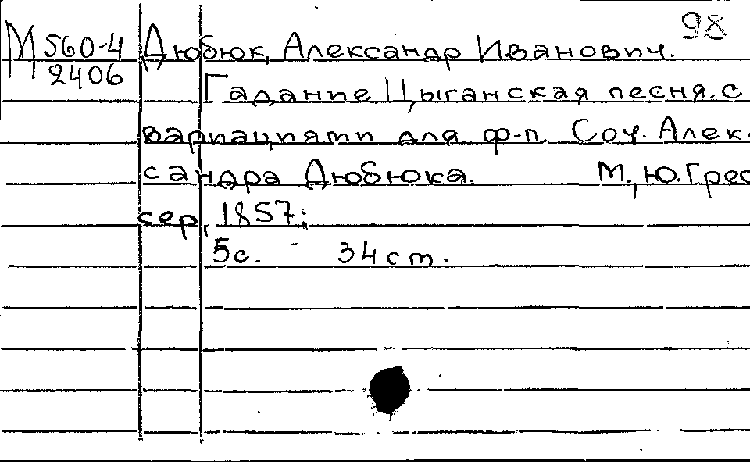 98
М 560-4 Дюбюк, Александр Иванович.
2406
Гадание Цыганская песня. с
вариациями для ф-п. Соч. Алек-
сандра Дюбюка. М., Ю. Грес
сер, 1857;
5с. - 34 cm.